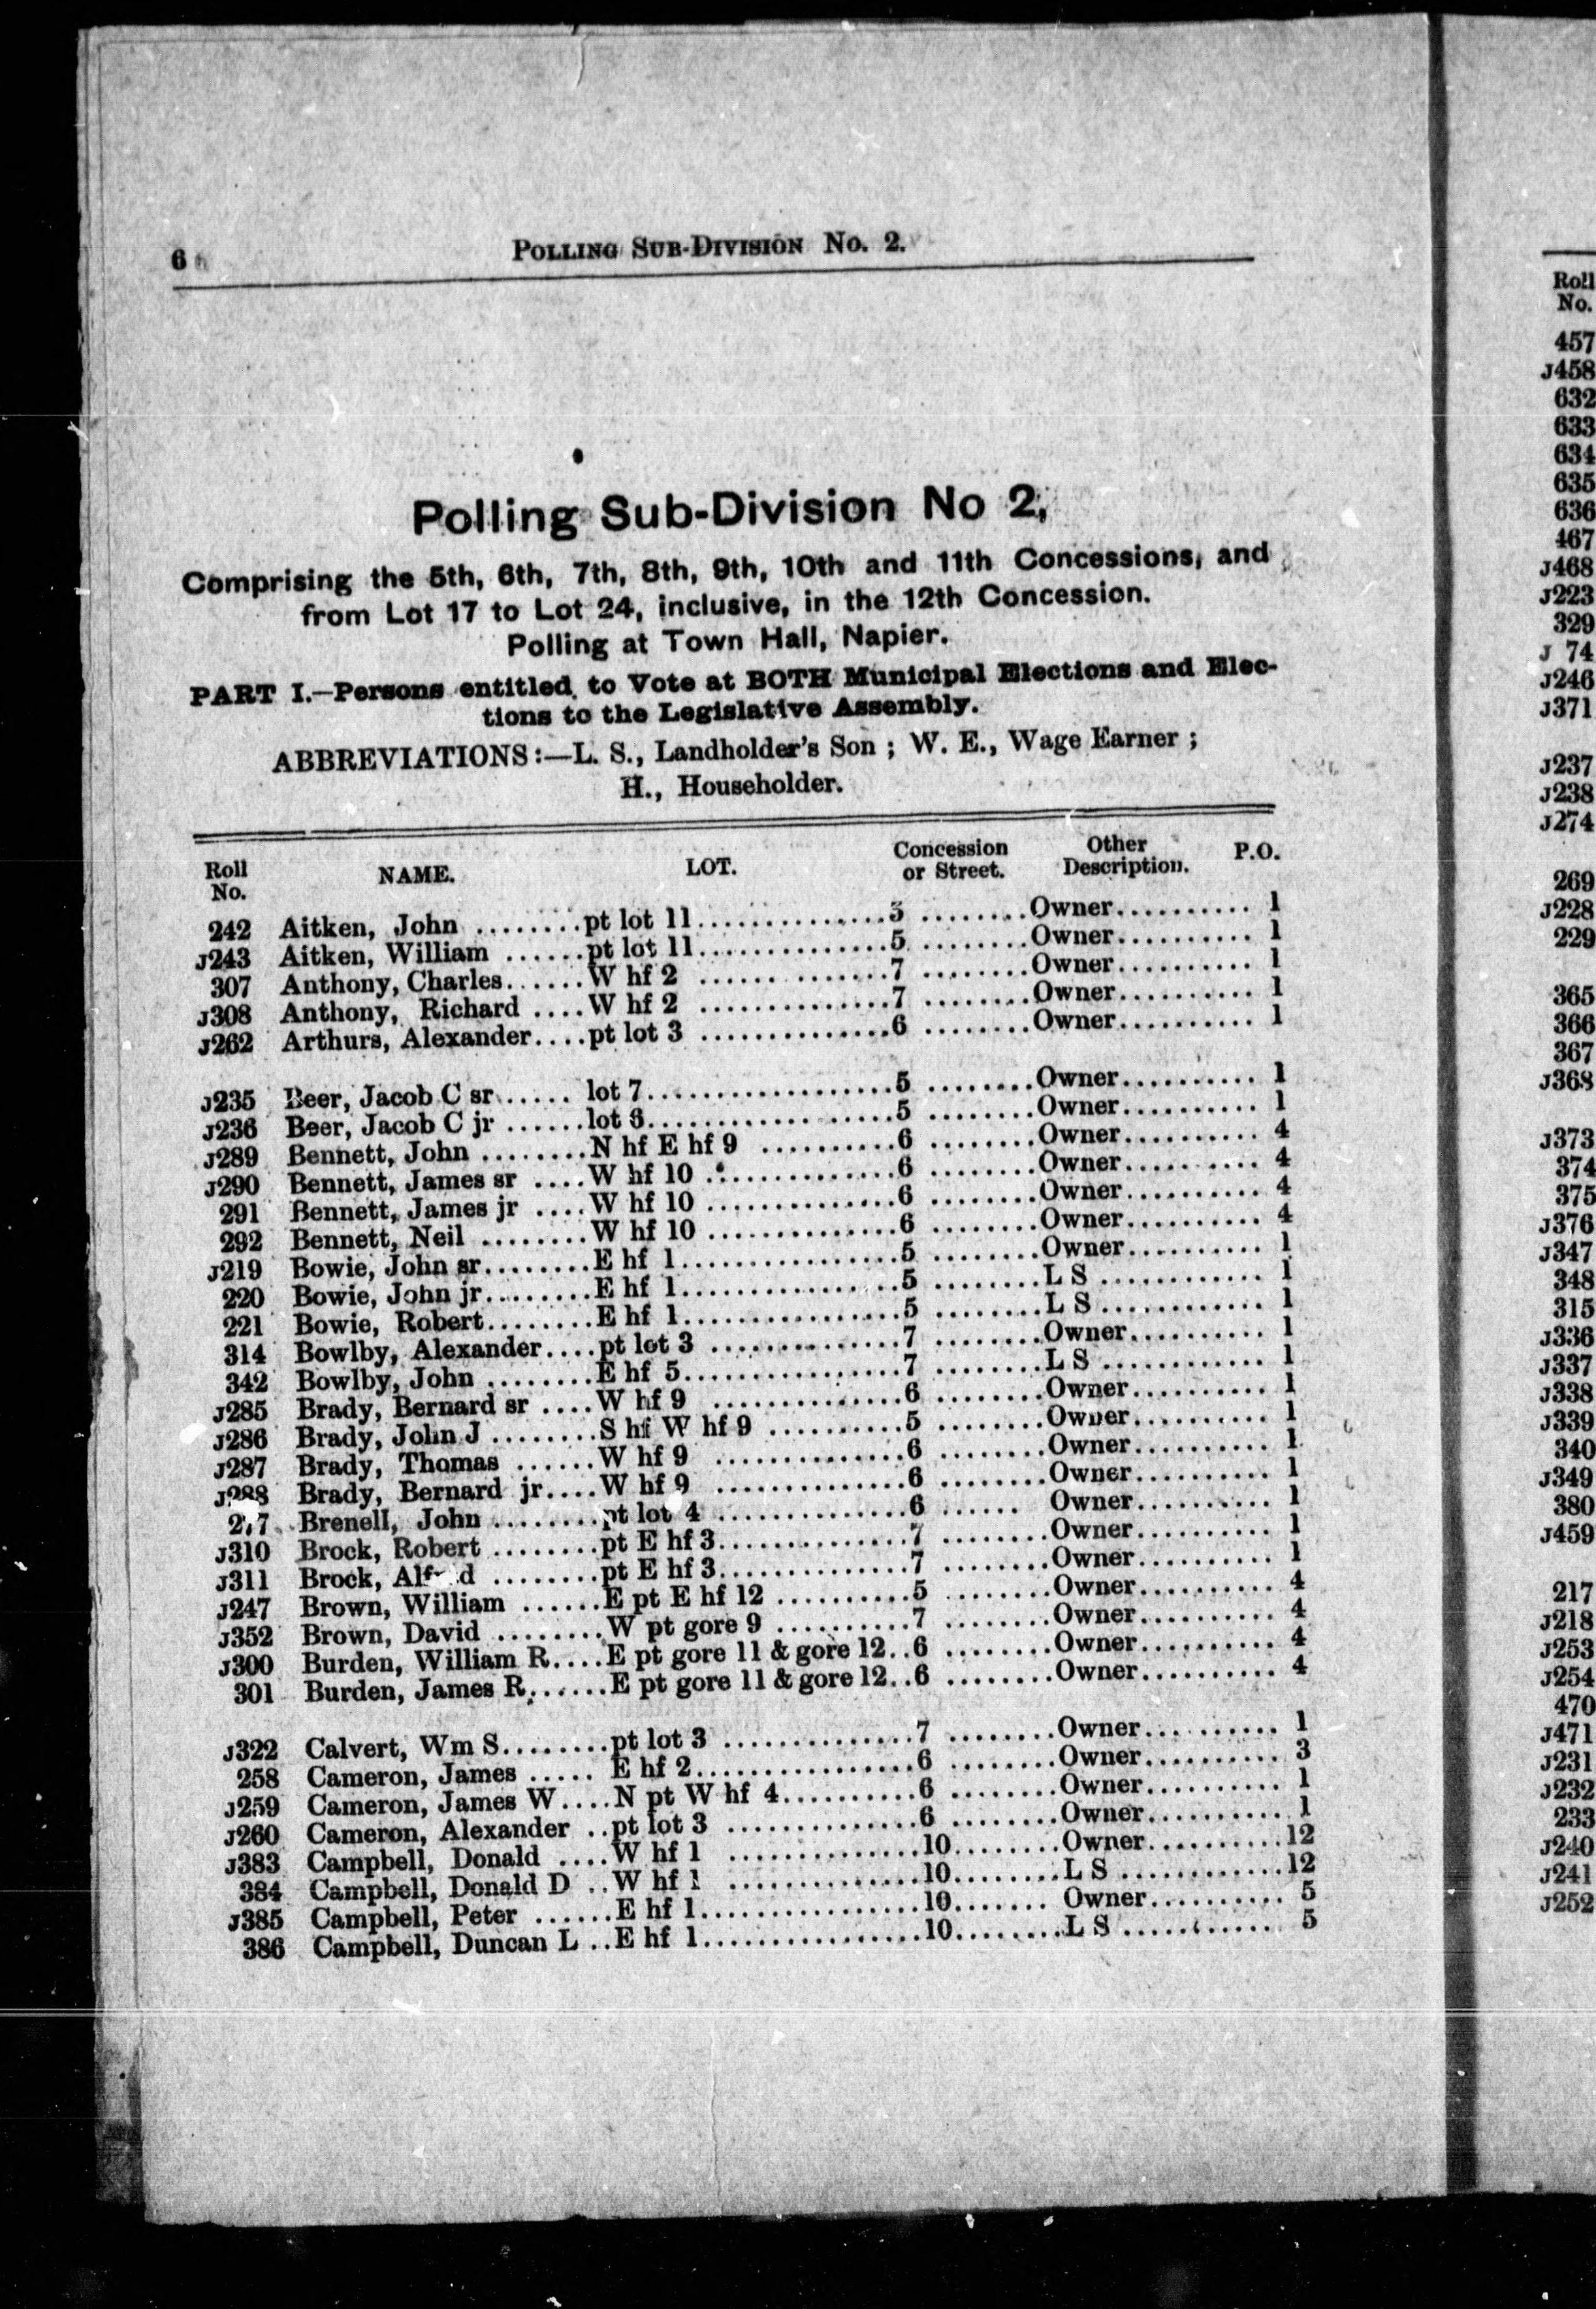 6
POLLING SUB-DIVISION NO. 2.
Polling Sub-Division No 2,
Comprising the 5th, 6th, 7th, 8th, 9th, 10th and 11th Concessions, and
from Lot 17 to Lot 24, inclusive, in the 12th Concession.
Polling at Town Hall, Napier.
PART I.—Persons entitled to Vote at BOTH Municipal Elections and Elec-
tions to the Legislative Assembly.
ABBREVIATIONS:—L. S., Landholder's Son ; W. E., Wage Earner ;
H., Householder.
Roll No. NAME. LOT. Concession or Street. Other Description. P.O.
242 Aitken, John ........pt lot 11...............5 ........Owner.......... 1
J243 Aitken, William ......pt lot 11...............5 ........Owner.......... 1
307 Anthony, Charles......W hf 2 ...............7 ........Owner.......... 1
J308 Anthony, Richard ....W hf 2 ...............7 ........Owner.......... 1
J262 Arthurs, Alexander....pt lot 3 ...............6 ........Owner.......... 1
J235 Beer, Jacob C sr...... lot 7...................5 ........Owner.......... 1
J236 Beer, Jacob C jr ......lot ...................5 ........Owner.......... 1
J289 Bennett, John ........N hf E hf 9 ..........6 ........Owner.......... 4
J290 Bennett, James sr ....W hf 10 ...............6 ........Owner.......... 4
291 Bennett, James jr ....W hf 10 ...............6 ........Owner.......... 4
292 Bennett, Neil ........W hf 10 ...............6 ........Owner.......... 4
J219 Bowie, John sr........E hf 1.................5 ........Owner.......... 1
220 Bowie, John jr........E hf 1.................5 ........L S ............ 1
221 Bowie, Robert........E hf 1.................5 ........L S ............ 1
314 Bowlby, Alexander....pt lot 3 ...............7 ........Owner.......... 1
342 Bowlby, John ........E hf 5.................7 ........L S ............ 1
J285 Brady, Bernard sr ....W hf 9 ...............6 ........Owner.......... 1
J286 Brady, John J ........S hf W hf 9 ..........5 ........Owner.......... 1
J287 Brady, Thomas ......W hf 9 ...............6 ........Owner.......... 1
J288 Brady, Bernard jr....W hf 9 ...............6 ........Owner.......... 1
Brenell, John ........pt lot 4 ...............6 ...... Owner.......... 1
J310 Brock, Robert ........pt E hf 3...............7 ........Owner.......... 1
J311 Brock, ........pt E hf 3...............7 ........Owner.......... 1
J247 Brown, William ......E pt E hf 12 ..........5 ........Owner.......... 4
J352 Brown, David ........W pt gore 9 ..........7 ........Owner.......... 4
J300 Burden, William R....E pt gore 11 & gore 12..6 ........Owner.......... 4
301 Burden, James R......E pt gore 11 & gore 12..6 ........Owner.......... 4
J322 Calvert, Wm S........pt lot 3 ...............7 ........Owner.......... 1
258 Cameron, James ..... E hf 2.................6 ........Owner.......... 3
J259 Cameron, James W....N pt W hf 4..........6 ........Owner.......... 1
J260 Cameron, Alexander ..pt lot 3 ...............6 ........Owner.......... 1
J383 Campbell, Donald ....W hf 1 ...............10........Owner..........12
384 Campbell, Donald D ..W hf 1 ...............10........L S ............12
J385 Campbell, Peter ......E hf 1.................10....... Owner.......... 5
386 Campbell, Duncan L ..E hf 1.................10........L S ............ 5
Roll
No.
457
J458
632
633
634
635
636
467
J468
J223
329
J 74
J246
J371
J237
J238
J274
269
J228
229
365
366
367
J368
J373
374
375
J376
J347
348
315
J336
J337
J338
J339
340
J349
380
J459
217
J218
J253
J254
470
J471
J231
J232
233
J240
J241
J252